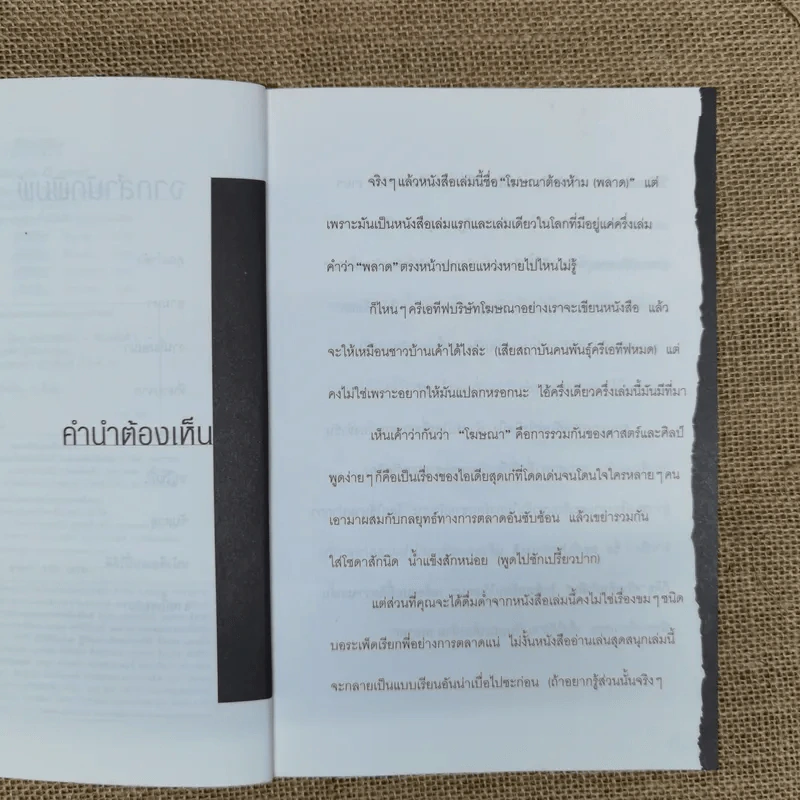 คำนำต้องเห็น
จริงๆ แล้วหนังสือเล่มนี้ชื่อ "โฆษณาต้องห้าม (พลาด)" แต่
เพราะมันเป็นหนังสือเล่มแรกและเล่มเดียวในโลกที่มีอยู่แค่ครึ่งเล่ม
คำว่า "พลาด" ตรงหน้าปกเลยแหว่งหายไปไหนไม่รู้
ก็ไหนๆ ครีเอทีฟบริษัทโฆษณาอย่างเราจะเขียนหนังสือ แล้ว
จะให้เหมือนชาวบ้านเค้าได้ไงล่ะ (เสียสถาบันคนพันธุ์ครีเอทีฟหมด) แต่
คงไม่ใช่เพราะอยากให้มันแปลกหรอกนะ ไอ้ครึ่งเดียวครึ่งเล่มนี้มันมีที่มา
เห็นเค้าว่ากันว่า "โฆษณา" คือการรวมกันของศาสตร์และศิลป์
พูดง่ายๆ ก็คือเป็นเรื่องของไอเดียสุดเก๋ที่โดดเด่นจนโดนใจใครหลายๆ คน
เอามาผสมกับกลยุทธ์ทางการตลาดอันซับซ้อน แล้วเขย่ารวมกัน
ใส่โซดาสักนิด น้ำแข็งสักหน่อย (พูดไปชักเปรี้ยวปาก)
แต่ส่วนที่คุณจะได้ดื่มด่ำจากหนังสือเล่มนี้คงไม่ใช่เรื่องขมๆ ชนิด
บอระเพ็ดเรียกพี่อย่างการตลาดแน่ ไม่งั้นหนังสืออ่านเล่นสุดสนุกเล่มนี้
จะกลายเป็นแบบเรียนอันน่าเบื่อไปซะก่อน (ถ้าอยากรู้ส่วนนั้นจริงๆ